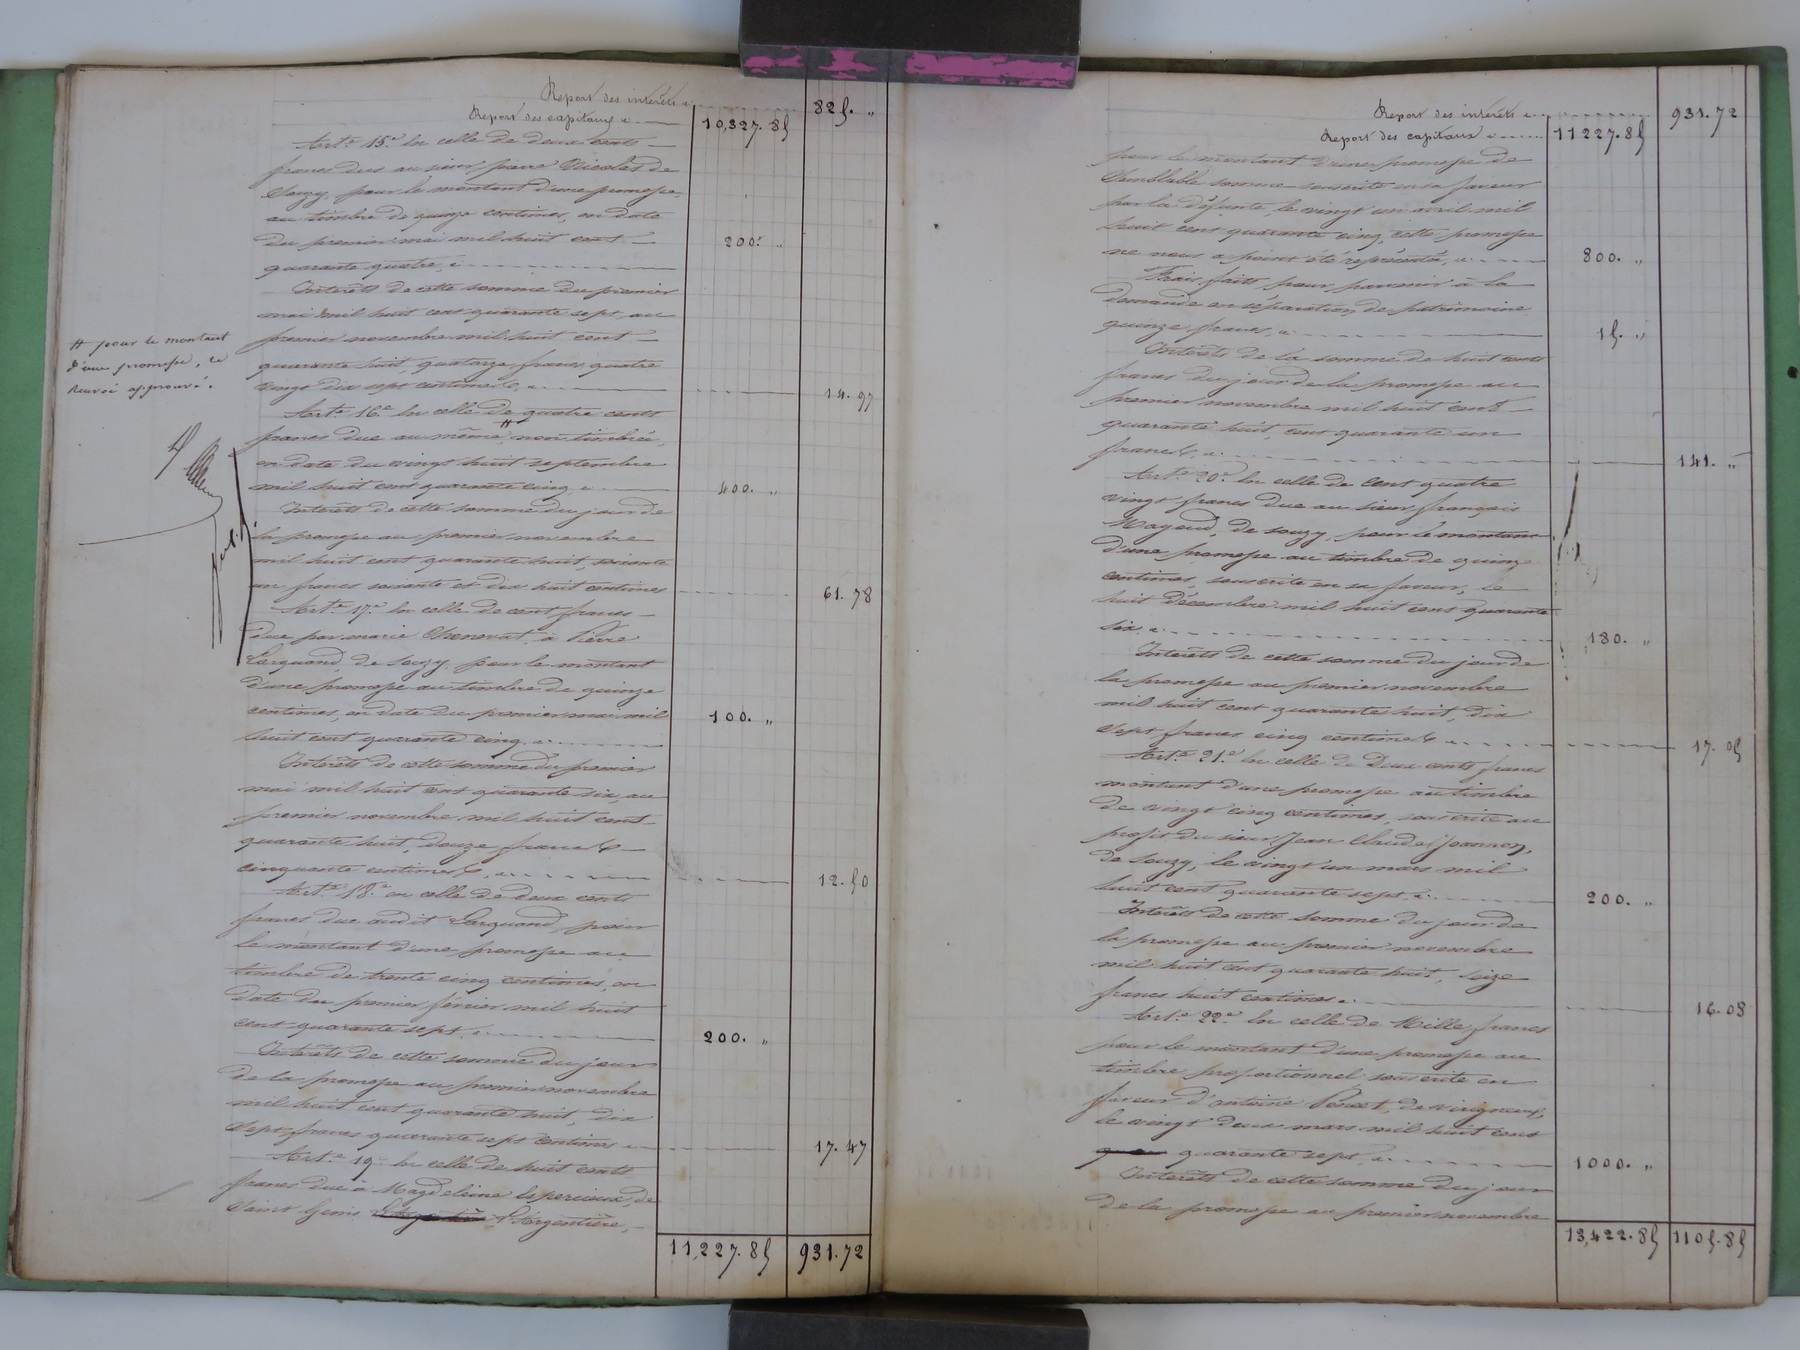 Report des intérêts . . . . . 825. „
Report des capitaux . — 10,327. 85
Art.e 15.e En celle de deux cents —
francs dus au sieur pierre Nicolas de
Souzy, pour le montant d'une promesse
au timbre de quinze centimes, en date
du premier mai mil huit cent — 200.f „
quarante quatre,
Intérêts de cette somme du premier
mai mil huit cent quarante sept au
premier novembre mil huit cent —
quarante huit, quatorze francs quatre
vingt dix sept centimes, 14. 97
Art.e 16.e En celle de quatre cents
francs due au même # non timbrée,
en date du vingt huit septembre
mil huit cent quarante cinq 400. „
Intérêts de cette somme du jour de
la promesse au premier novembre
mil huit cent quarante huit, soixante
un francs soixante et dix huit centimes 61. 78
Art.e 17.e En celle de cent francs —
due par marie Chenevat à Pierre
Larquand, de Souzy pour le montant
d'une promesse au timbre de quinze
centimes, en date du premier mai mil 100. „
huit cent quarante cinq
Intérêts de cette somme du premier
mai mil huit cent quarante six, au
premier novembre mil huit cent
quarante huit, douze francs —
cinquante centimes, 12. 50
Art.e 18.e en celle de deux cents
francs due audit Larquand, pour
le montant d'une promesse au
timbre de trente cinq centimes, en
date du premier février mil huit
cent quarante sept, 200. „
Intérêts de cette somme du jour
de la promesse au premier novembre
mil huit cent quarante huit, dix
sept francs quarante sept centimes 17. 47
Art.e 19.e En celle de huit cents
francs due à Magdeleine de
Saint Genis L'Argentière, —
11,227. 85 931. 72
# pour le montant
d'une promesse, ce
Renvoi approuvé.
Report des intérêts . . . . . 931. 72
Report des capitaux . . . . 11227. 85
pour le montant d'une promesse de
Semblable somme souscrite en sa faveur
par la défunte, le vingt un avril mil
huit cent quarante cinq, cette promesse
ne nous a point été représentée, 800. „
Frais faits pour parvenir à la
demande en séparation de patrimoine
quinze francs, 15. „
Intérêts de la somme de huit cents
francs du jour de la promesse au
premier novembre mil huit cent —
quarante huit, cent quarante un
francs, 141. „
Art.e 20.e En celle de Cent quatre
vingt francs due au sieur françois
Mayeud, de Souzy, pour le montant
d'une promesse au timbre de quinze
centimes, souscrite en sa faveur, le
huit Décembre mil huit cent quarante
six 180. „
Intérêts de cette somme du jour de
la promesse au premier novembre
mil huit cent quarante huit, dix
sept francs cinq centimes 17. 05
Art.e 21.e En celle de Deux cents francs
montant d'une promesse au timbre
de vingt cinq centimes, souscrite au
profit du sieur Jean Claude Joannon,
de Souzy, le vingt un mars mil
huit cent quarante sept, 200. „
Intérêts de cette somme du jour de
la promesse au premier novembre
mil huit cent quarante huit, seize
francs huit centimes 16. 08
Art.e 22.e En celle de Mille francs
pour le montant d'une promesse au
timbre proportionnel souscrite en
faveur d'antoine Poncet, de
le vingt deux mars mil huit cent
quarante sept, 1000. „
Intérêts de cette somme du jour
de la promesse au premier novembre
13,422. 85 1105. 85